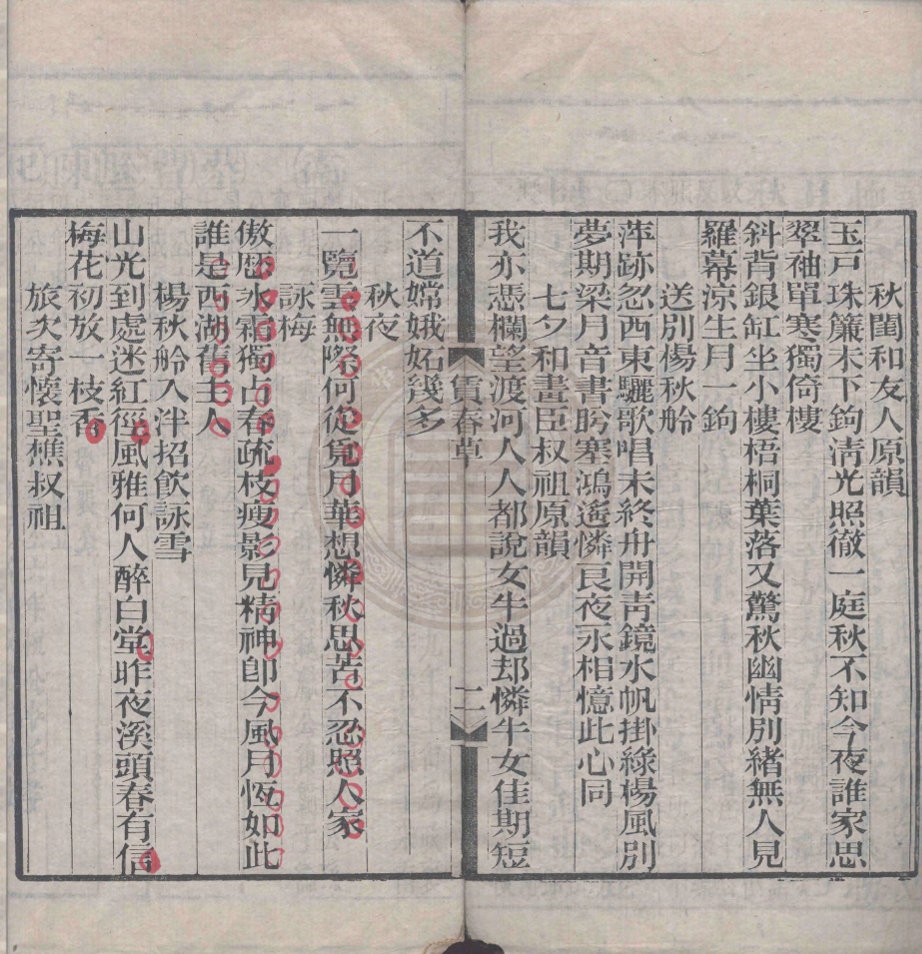 秋閨和友人原韻
玉戸珠簾未下鉤清光照徹一庭秋不知今夜誰家思
翠袖單寒獨倚樓
斜背銀缸坐小樓梧桐葉落又驚秋幽情別緒無人見
羅幕凉生月一鉤
送別楊秋舲
萍跡忽西東驪歌唱未終舟開青鏡水帆掛綠楊風別
夢期梁月音書盻塞鴻遙憐良夜永相憶此心同
七夕和畫臣叔祖原韻
我亦憑欄望渡河人人都說女牛過却憐牛女佳期短
賃春草
二
不道嫦娥妬幾多
秋夜
一覽雲無際何從覓月華想憐秋思苦不忍照人家
詠梅
傲歷氷霜獨占春疏枝瘦影見精神卽今風月恆如此
誰是西湖舊主人
楊秋舲入泮招飲詠雪
山光到處迷紅徑風雅何人醉白堂昨夜溪頭春有信
梅花初放一枝香
旅次寄懷聖樵叔祖